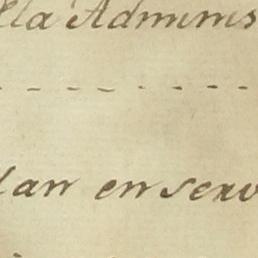 lla Adminis
lan en serv